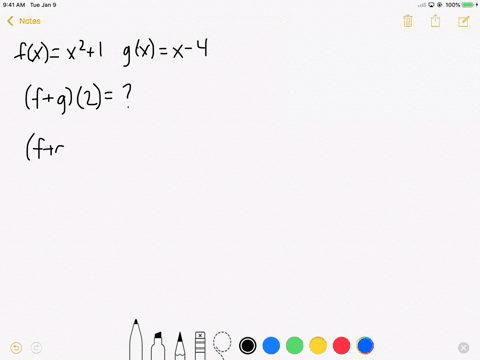 9:41 AM Tue Jan 9 100%
Notes
f(x) = x²+1 g(x) = x-4
(f+g)(2) = ?
(f+r